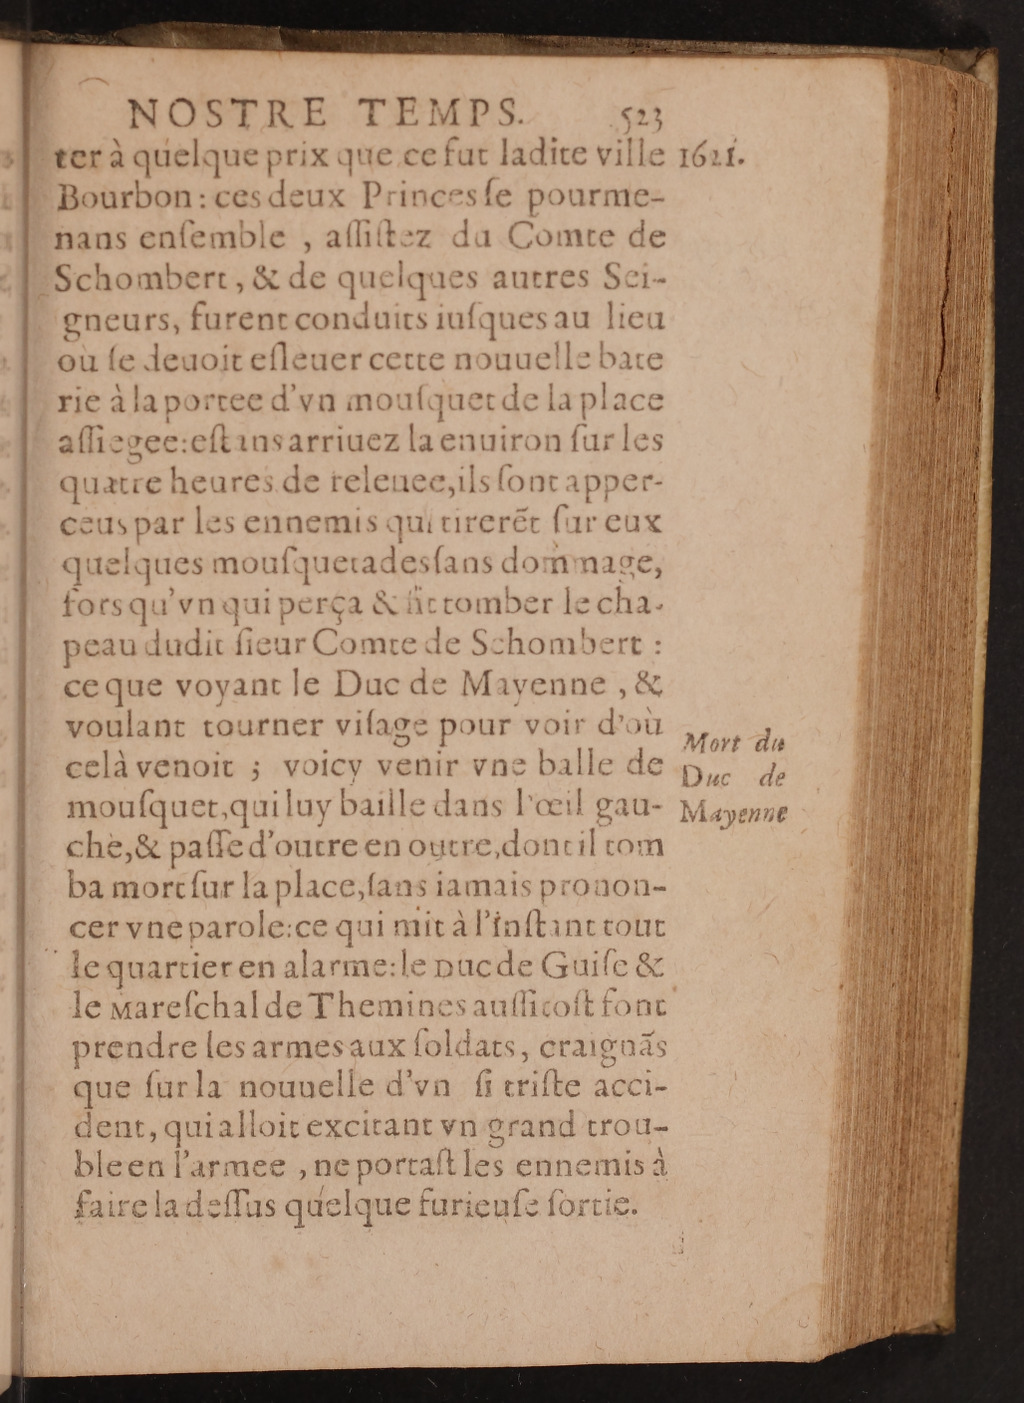 NOSTRE TEMPS. 523
ter à quelque prix que ce fut ladite ville 1621.
Bourbon : ces deux Princes ſe pourme-
nans enſemble , aſſiſtez du Comte de
Schombert , & de quelques autres Sei-
gneurs, furent conduits iuſques au lieu
où ſe deuoit eſleuer cette nouuelle bate
rie à la portee d'vn mouſquet de la place
aſſiegee:eſtans arriuez la enuiron ſur les
quatre heures de releuee,ils ſont apper-
ceus par les ennemis qui tirerẽt ſur eux
quelques mouſquetades ſans dommage,
fors qu'vn qui perça & fit tomber le cha-
peau dudit ſieur Comte de Schombert :
ce que voyant le Duc de Mayenne , &
voulant tourner viſage pour voir d'où
celà venoit ; voicy venir vne balle de
mouſquet,qui luy baille dans l'œil gau-
che,& paſſe d'outre en outre,dont il tom
ba mort ſur la place,ſans iamais pronon-
cer vne parole:ce qui mit à l'inſtant tout
le quartier en alarme:le Duc de Guiſe &
le Mareſchal de Themines auſſitoſt font
prendre les armes aux ſoldats, craignãs
que ſur la nouuelle d'vn ſi triſte acci-
dent, qui alloit excitant vn grand trou-
ble en l'armee , ne portaſt les ennemis à
faire la deſſus quelque furieuſe ſortie.
Mort du
Duc de
Mayenne